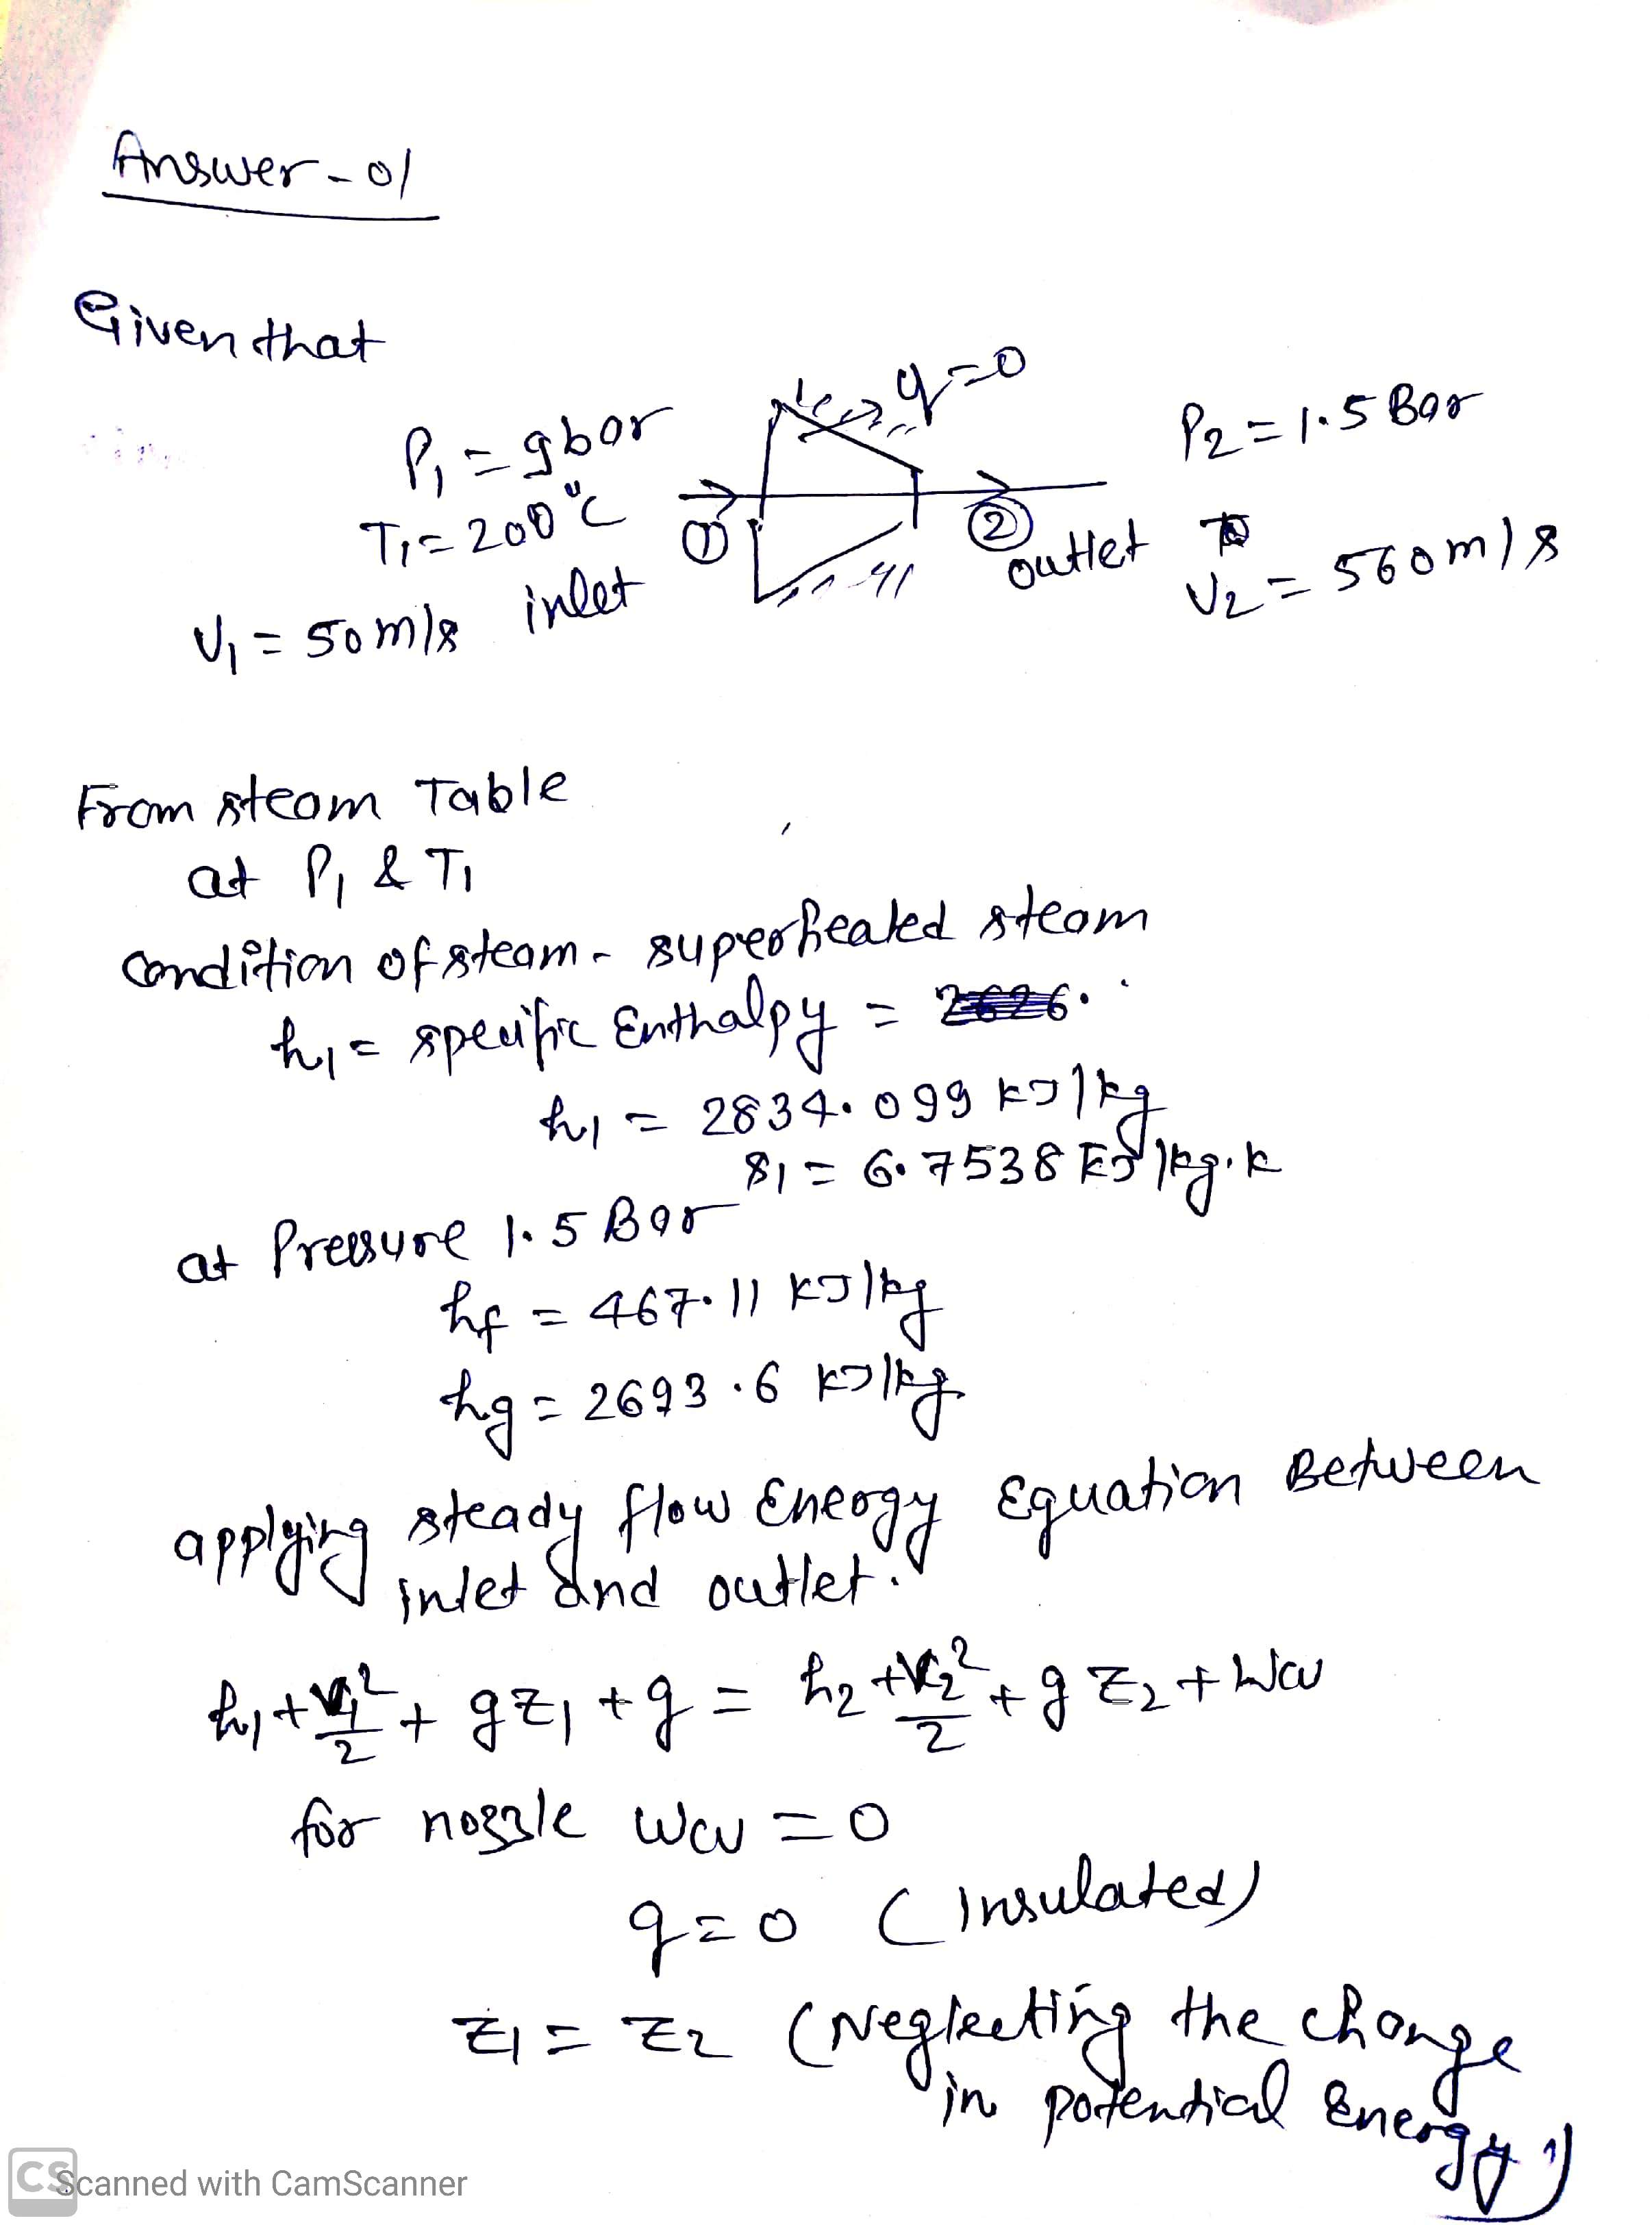 Answer-01
Given that
P1 = 9bar
q=0
P2 = 1.5 Bar
T1= 200°C
①
②
outlet
V1 = 50m/s
inlet
V2 = 560m/s
From steam Table
at P1 & T1
Condition of steam - superheated steam
h1 = specific Enthalpy =
h1 = 2834.099 kJ/kg
s1 = 6.7538 kJ/kg.k
at Pressure 1.5 Bar
hf = 467.11 kJ/kg
hg = 2693.6 kJ/kg
applying steady flow Energy Equation Between
inlet and outlet.
h1 + V1²/2 + gz1 + q = h2 + V2²/2 + gz2 + Wcv
for nozzle Wcv = 0
q=0 (Insulated)
z1 = z2 (Neglecting the change
in potential Energy)
CS
Scanned with CamScanner